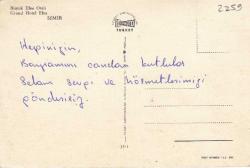 Büyük Efes Oteli
Grand Hotel Efes
IZMIR
TURKEY
2259
Hepinizin,
Bayramını candan kutlular
Selam sevgi ve hürmetlerimizi
göndeririz.